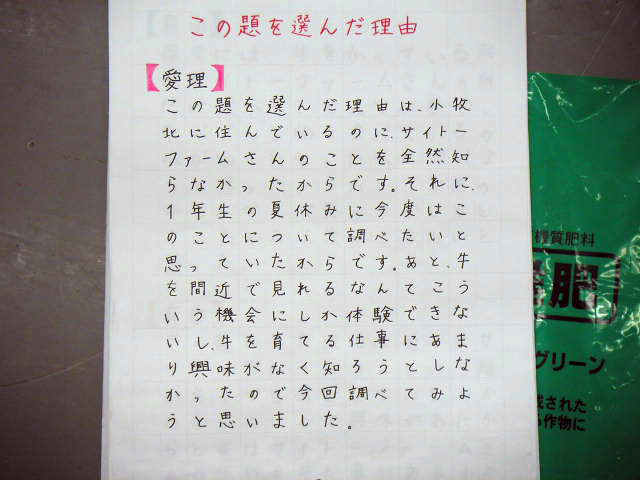 この題を選んだ理由
【愛理】
この題を選んだ理由は、小牧
北に住んでいるのに、サイトー
ファームさんのことを全然知
らなかったからです。それに、
1年生の夏休みに今度はこ
のことについて調べたいと
思っていたからです。あと、牛
を間近で見れるなんてこう
いう機会にしか体験できな
いし、牛を育てる仕事にあま
り興味がなく知ろうとしな
かったので今回調べてみよ
うと思いました。
機質肥料
肥
グリーン
成された
作物に